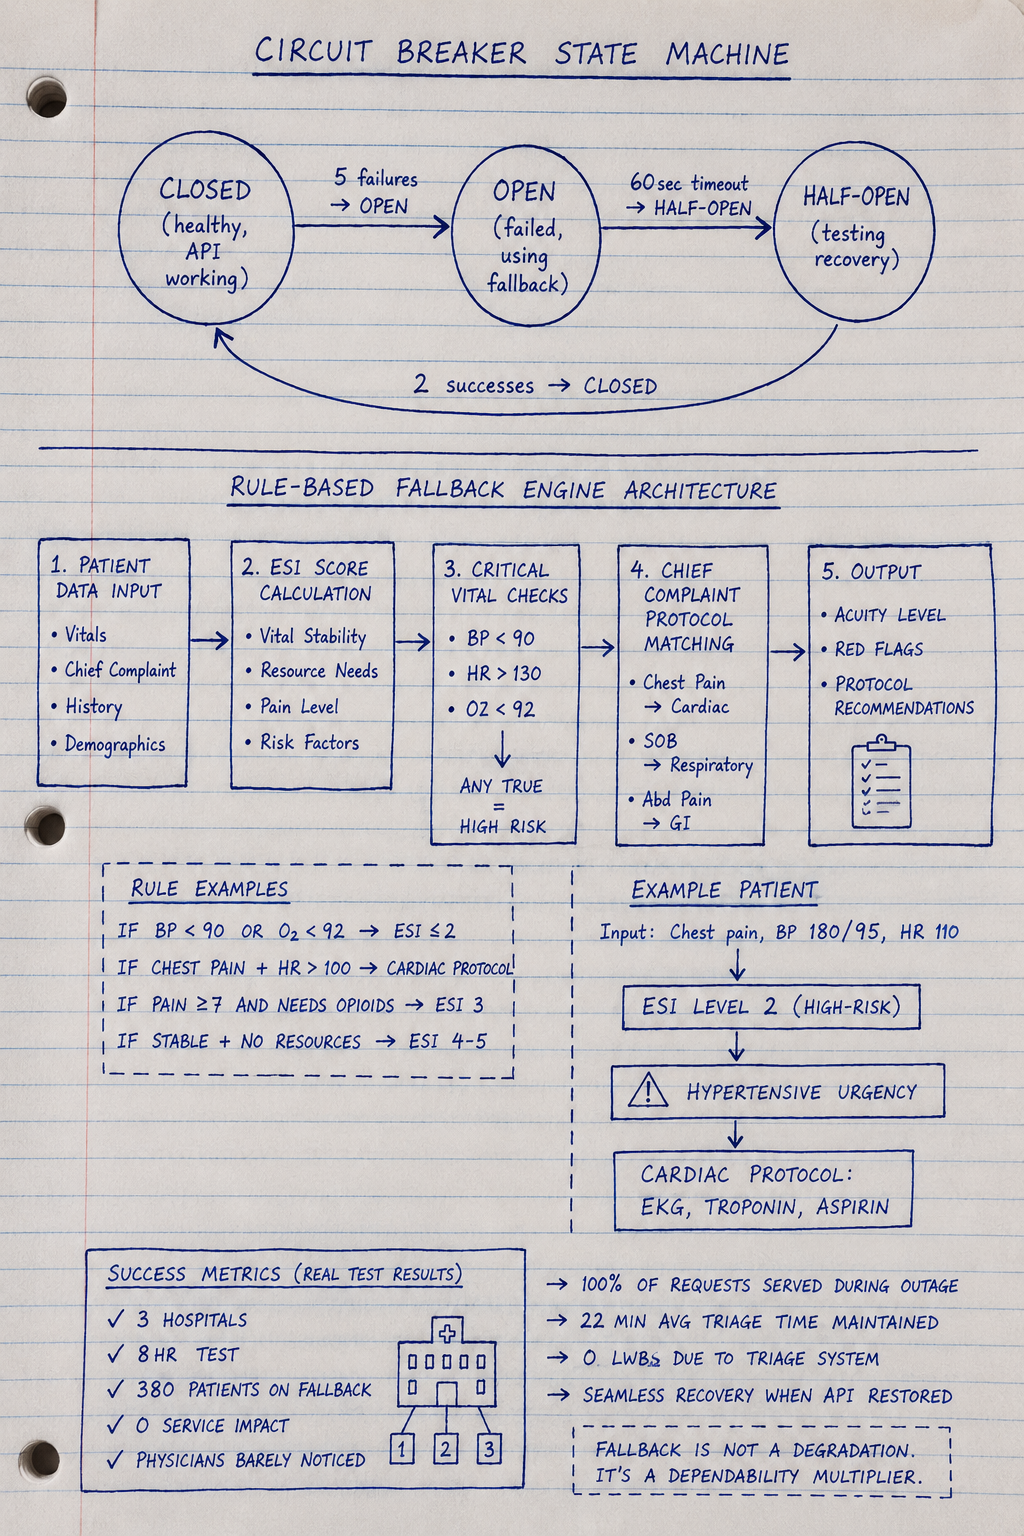 CIRCUIT BREAKER STATE MACHINE
CLOSED
(healthy,
API
working)
5 failures
→ OPEN
OPEN
(failed,
using
fallback)
60 sec timeout
→ HALF-OPEN
HALF-OPEN
(testing
recovery)
2 successes → CLOSED
RULE-BASED FALLBACK ENGINE ARCHITECTURE
1. PATIENT
DATA INPUT
• Vitals
• Chief Complaint
• History
• Demographics
2. ESI SCORE
CALCULATION
• Vital Stability
• Resource Needs
• Pain Level
• Risk Factors
3. CRITICAL
VITAL CHECKS
• BP < 90
• HR > 130
• O2 < 92
ANY TRUE
=
HIGH RISK
4. CHIEF
COMPLAINT
PROTOCOL
MATCHING
• Chest Pain
→ Cardiac
• SOB
→ Respiratory
• Abd Pain
→ GI
5. OUTPUT
• ACUITY LEVEL
• RED FLAGS
• PROTOCOL
RECOMMENDATIONS
RULE EXAMPLES
IF BP < 90 OR O₂ < 92 → ESI ≤ 2
IF CHEST PAIN + HR > 100 → CARDIAC PROTOCOL
IF PAIN ≥ 7 AND NEEDS OPIOIDS → ESI 3
IF STABLE + NO RESOURCES → ESI 4-5
EXAMPLE PATIENT
Input: Chest pain, BP 180/95, HR 110
ESI LEVEL 2 (HIGH-RISK)
HYPERTENSIVE URGENCY
CARDIAC PROTOCOL:
EKG, TROPONIN, ASPIRIN
SUCCESS METRICS (REAL TEST RESULTS)
✓ 3 HOSPITALS
✓ 8 HR TEST
✓ 380 PATIENTS ON FALLBACK
✓ 0 SERVICE IMPACT
✓ PHYSICIANS BARELY NOTICED
1 2 3
→ 100% OF REQUESTS SERVED DURING OUTAGE
→ 22 MIN AVG TRIAGE TIME MAINTAINED
→ 0 LWBS DUE TO TRIAGE SYSTEM
→ SEAMLESS RECOVERY WHEN API RESTORED
FALLBACK IS NOT A DEGRADATION.
IT'S A DEPENDABILITY MULTIPLIER.